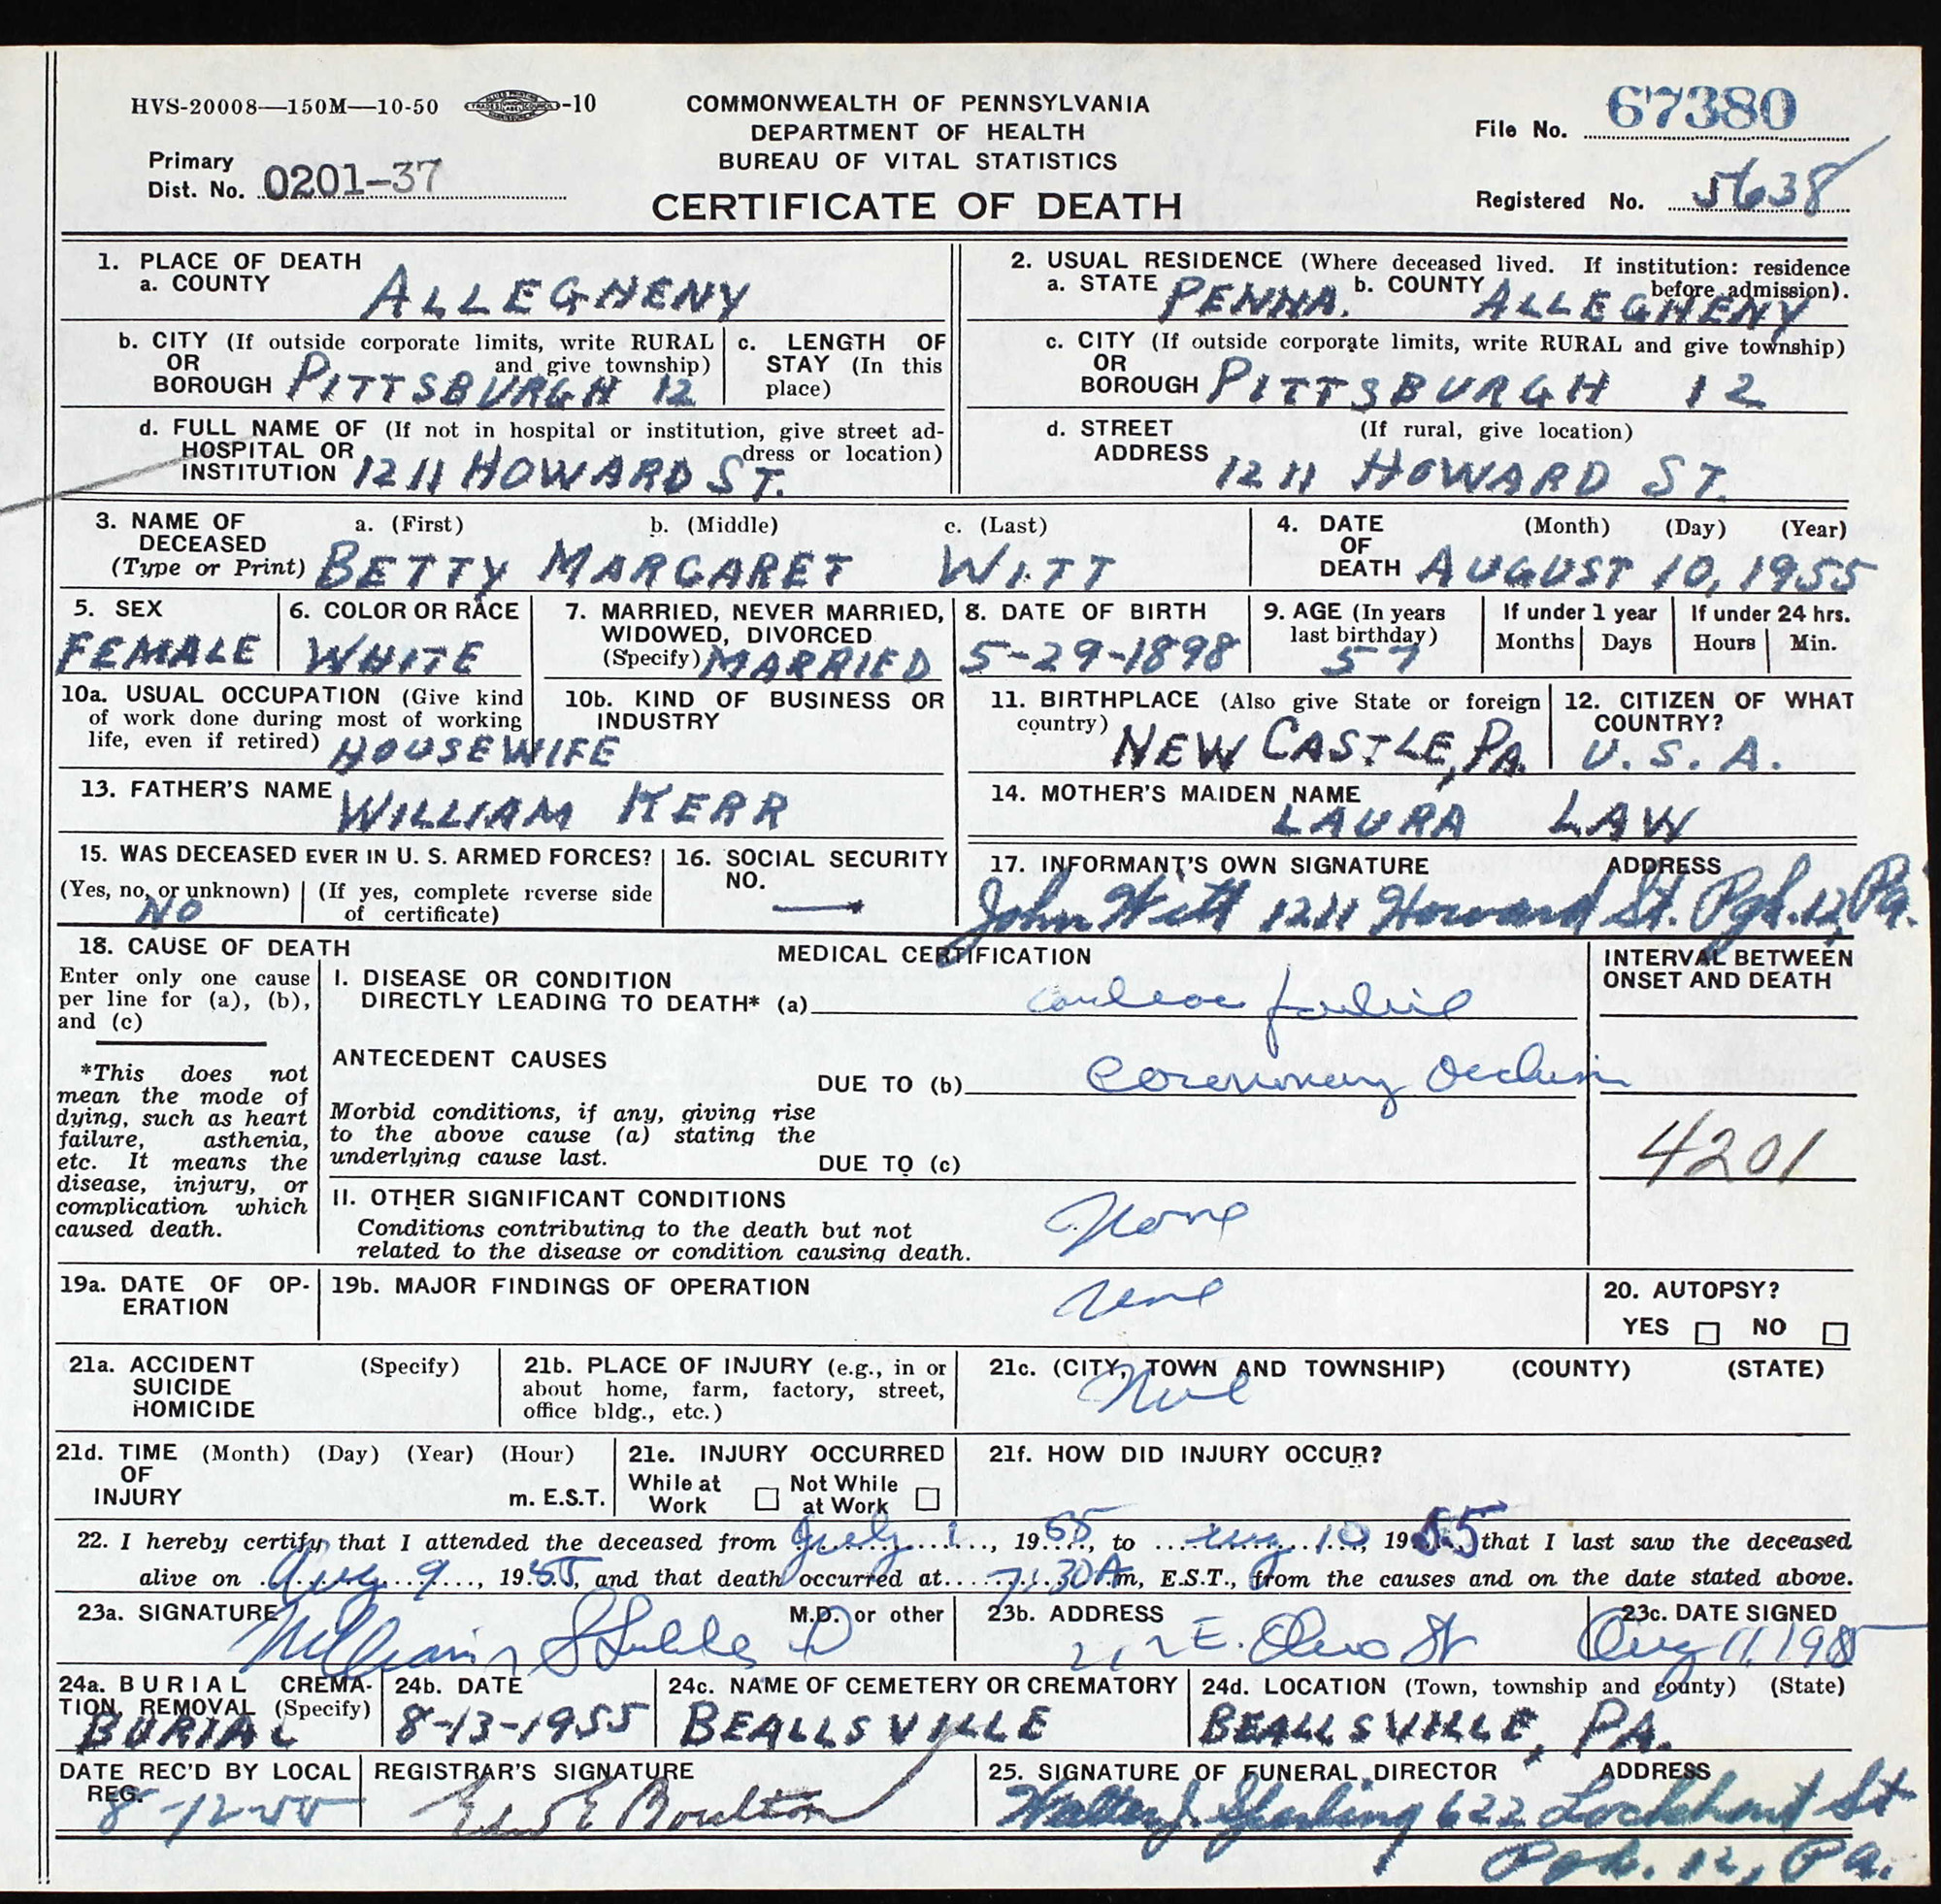 HVS-20008—150M—10-50 -10
COMMONWEALTH OF PENNSYLVANIA
DEPARTMENT OF HEALTH
BUREAU OF VITAL STATISTICS
CERTIFICATE OF DEATH
File No. 67380
Primary
Dist. No. 0201-37
Registered No. 5638
1. PLACE OF DEATH
a. COUNTY ALLEGHENY
2. USUAL RESIDENCE (Where deceased lived. If institution: residence
before admission).
a. STATE PENNA. b. COUNTY ALLEGHENY
b. CITY (If outside corporate limits, write RURAL
OR and give township)
BOROUGH PITTSBURGH 12
c. LENGTH OF
STAY (In this
place)
c. CITY (If outside corporate limits, write RURAL and give township)
OR
BOROUGH PITTSBURGH 12
d. FULL NAME OF (If not in hospital or institution, give street ad-
HOSPITAL OR dress or location)
INSTITUTION 1211 HOWARD ST.
d. STREET (If rural, give location)
ADDRESS 1211 HOWARD ST.
3. NAME OF a. (First) b. (Middle) c. (Last)
DECEASED
(Type or Print) BETTY MARGARET WITT
4. DATE (Month) (Day) (Year)
OF
DEATH AUGUST 10, 1955
5. SEX
FEMALE
6. COLOR OR RACE
WHITE
7. MARRIED, NEVER MARRIED,
WIDOWED, DIVORCED
(Specify) MARRIED
8. DATE OF BIRTH
5-29-1898
9. AGE (In years
last birthday)
57
If under 1 year
Months Days
If under 24 hrs.
Hours Min.
10a. USUAL OCCUPATION (Give kind
of work done during most of working
life, even if retired) HOUSEWIFE
10b. KIND OF BUSINESS OR
INDUSTRY
11. BIRTHPLACE (Also give State or foreign
country) NEW CASTLE, PA.
12. CITIZEN OF WHAT
COUNTRY?
U. S. A.
13. FATHER'S NAME WILLIAM KERR
14. MOTHER'S MAIDEN NAME
LAURA LAW
15. WAS DECEASED EVER IN U. S. ARMED FORCES?
(Yes, no, or unknown) (If yes, complete reverse side
of certificate)
NO
16. SOCIAL SECURITY
NO. —
17. INFORMANT'S OWN SIGNATURE ADDRESS
John Witt 1211 Howard St. Pgh. 12, Pa.
18. CAUSE OF DEATH
Enter only one cause
per line for (a), (b),
and (c)
*This does not
mean the mode of
dying, such as heart
failure, asthenia,
etc. It means the
disease, injury, or
complication which
caused death.
MEDICAL CERTIFICATION
I. DISEASE OR CONDITION
DIRECTLY LEADING TO DEATH* (a)
ANTECEDENT CAUSES
DUE TO (b) Coronary Occlusion
Morbid conditions, if any, giving rise
to the above cause (a) stating the
underlying cause last.
DUE TO (c)
II. OTHER SIGNIFICANT CONDITIONS
Conditions contributing to the death but not
related to the disease or condition causing death.
None
INTERVAL BETWEEN
ONSET AND DEATH
4201
19a. DATE OF OP-
ERATION
19b. MAJOR FINDINGS OF OPERATION
None
20. AUTOPSY?
YES NO
21a. ACCIDENT (Specify)
SUICIDE
HOMICIDE
21b. PLACE OF INJURY (e.g., in or
about home, farm, factory, street,
office bldg., etc.)
21c. (CITY, TOWN AND TOWNSHIP) (COUNTY) (STATE)
None
21d. TIME (Month) (Day) (Year) (Hour)
OF
INJURY m. E.S.T.
21e. INJURY OCCURRED
While at Not While
Work at Work
21f. HOW DID INJURY OCCUR?
22. I hereby certify that I attended the deceased from July 1, 1955, to Aug 10, 1955 that I last saw the deceased
alive on Aug 9, 1955, and that death occurred at 7:30 A m, E.S.T., from the causes and on the date stated above.
23a. SIGNATURE M.D. or other
William
23b. ADDRESS
E. Ohio St
23c. DATE SIGNED
Aug 11, 1955
24a. BURIAL CREMA-
TION, REMOVAL (Specify)
BURIAL
24b. DATE
8-13-1955
24c. NAME OF CEMETERY OR CREMATORY
BEALLSVILLE
24d. LOCATION (Town, township and county) (State)
BEALLSVILLE, PA.
DATE REC'D BY LOCAL
REG.
8-12-55
REGISTRAR'S SIGNATURE
Edw E Boulton
25. SIGNATURE OF FUNERAL DIRECTOR ADDRESS
Walter J. Sperling 622 Lockhart St
Pgh. 12, Pa.